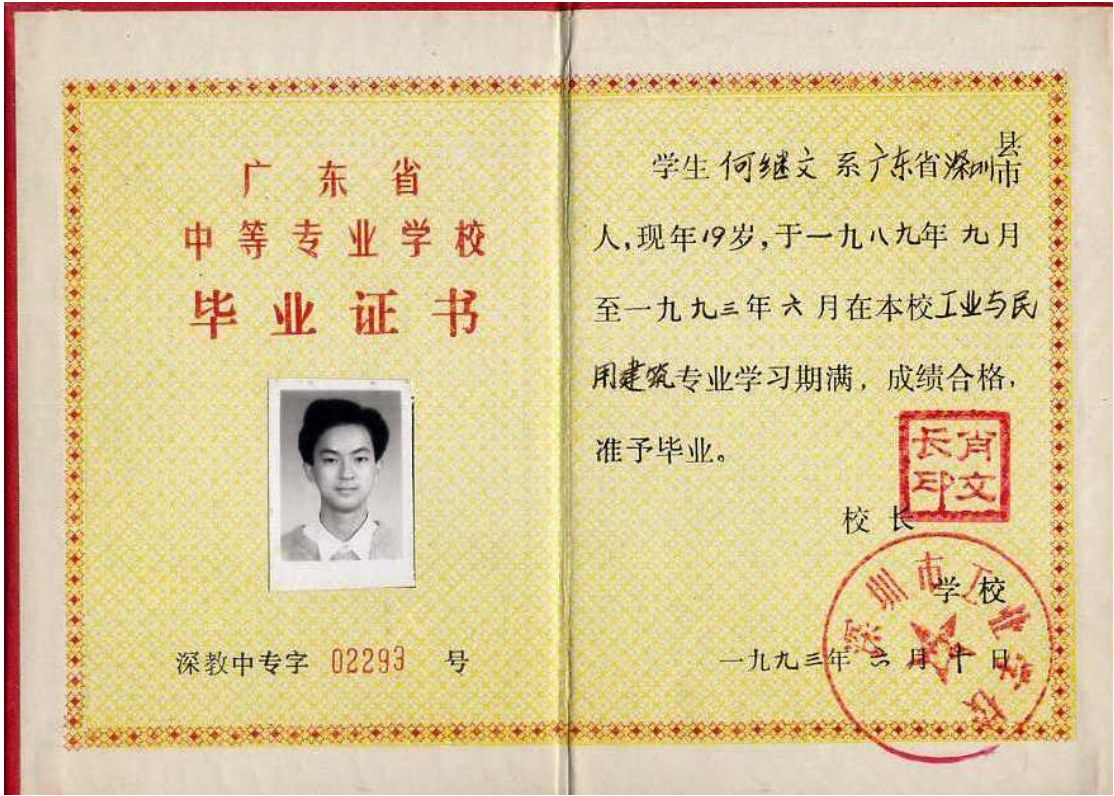 广东省
中等专业学校
毕业证书
深教中专字 02293 号
学生 何继文 系广东省深圳县市
人,现年19岁,于一九八九年 九月
至一九九三年 六 月在本校工业与民
用建筑专业学习期满,成绩合格,
准予毕业。
肖文
长印
校 长
学 校
一九九三年 六 月 十 日
深圳市工业学校